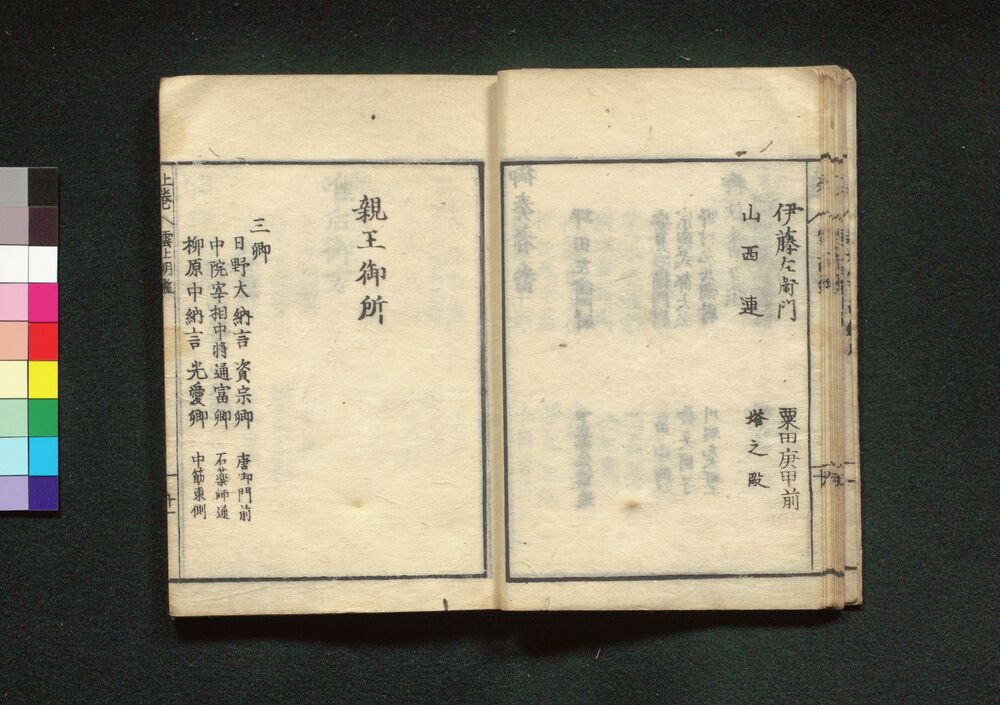 伊藤左衛門 粟田庚申前
山西連 塔之段
親王御所
三卿
日野大納言資宗卿 唐御門前
中院宰相中将通富卿 石薬師通
柳原中納言光愛卿 中筋東側
上巻 雲上明鑑 十一